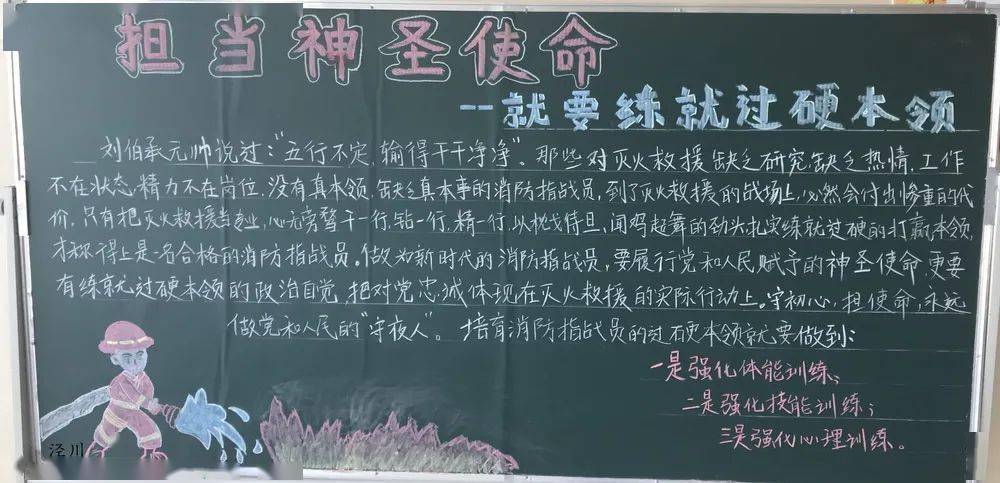 担当神圣使命
--就要练就过硬本领
刘伯承元帅说过:“五行不定,输得干干净净”。那些对灭火救援缺乏研究,缺乏热情,工作
不在状态,精力不在岗位,没有真本领,缺乏真本事的消防指战员,到了灭火救援的战场上,必然会付出惨重的代
价,只有把灭火救援当专业,心无旁骛干一行,钻一行,精一行,以枕戈待旦,闻鸡起舞的劲头,扎实练就过硬的打赢本领,
才称得上是一名合格的消防指战员。做为新时代的消防指战员,要履行党和人民赋予的神圣使命,更要
有练就过硬本领的政治自觉,把对党忠诚体现在灭火救援的实际行动上。守初心,担使命,永远
做党和人民的“守夜人”。培育消防指战员的过硬本领就要做到:
一是强化体能训练;
二是强化技能训练;
三是强化心理训练。
泾川